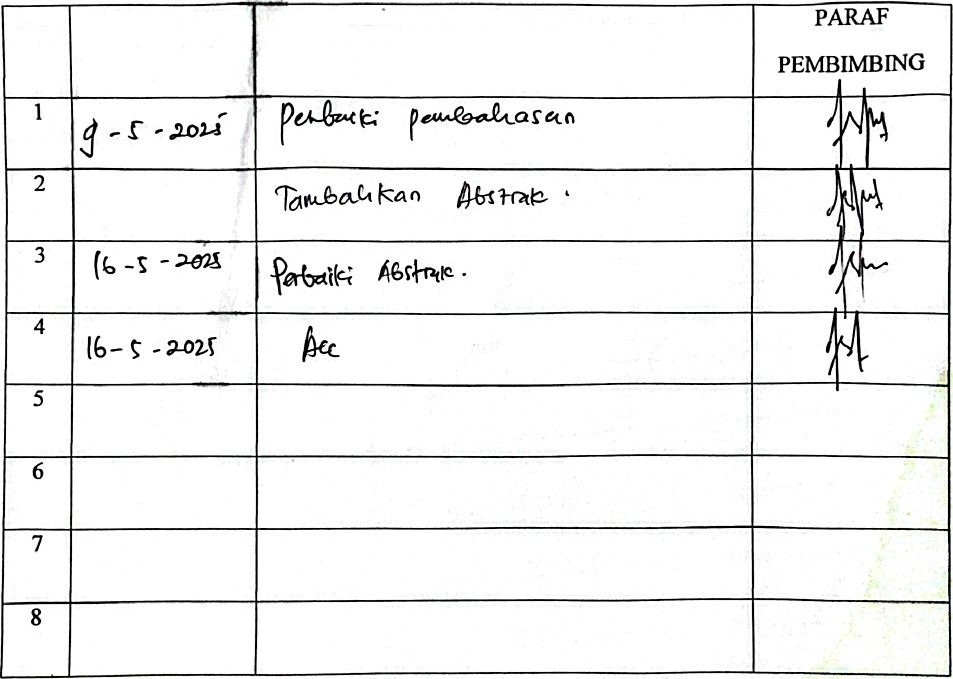 PARAF
PEMBIMBING
1 9-5-2025 Perbaiki pembahasan
2 Tambahkan Abstrak.
3 16-5-2025 Perbaiki Abstrak.
4 16-5-2025 Acc
5
6
7
8